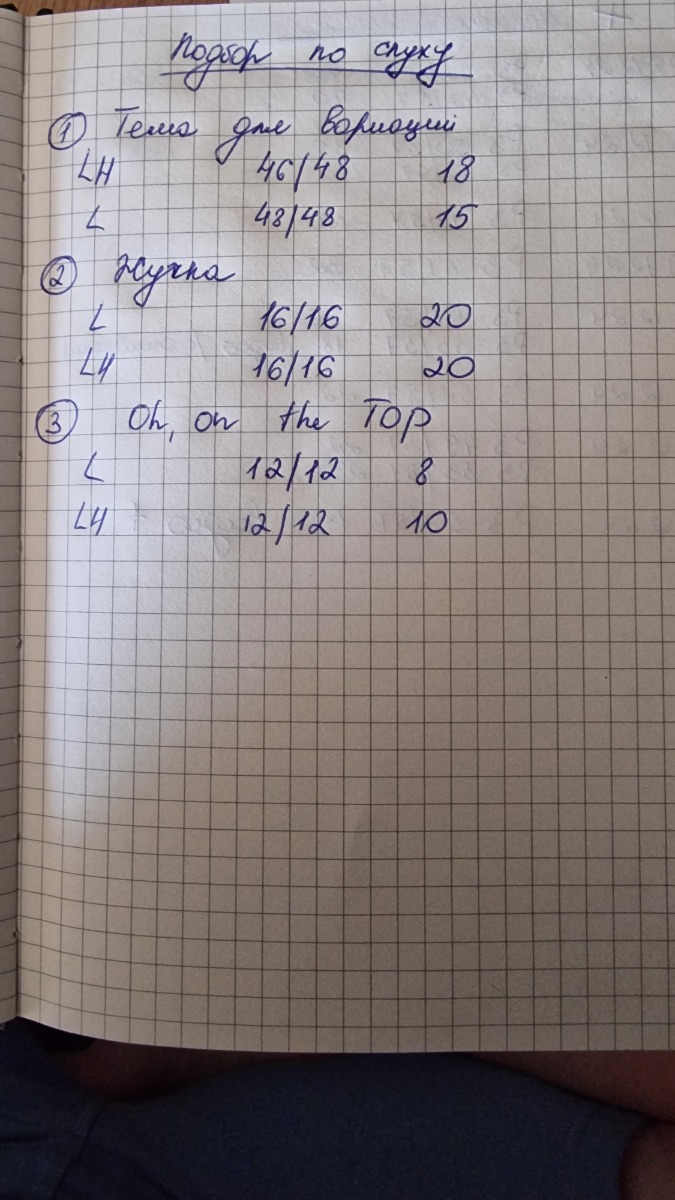 Подбор по слуху
① Тема для вариаций
LH 46/48 18
L 48/48 15
② Жучка
L 16/16 20
LH 16/16 20
③ Oh, on the TOP
L 12/12 8
LH 12/12 10